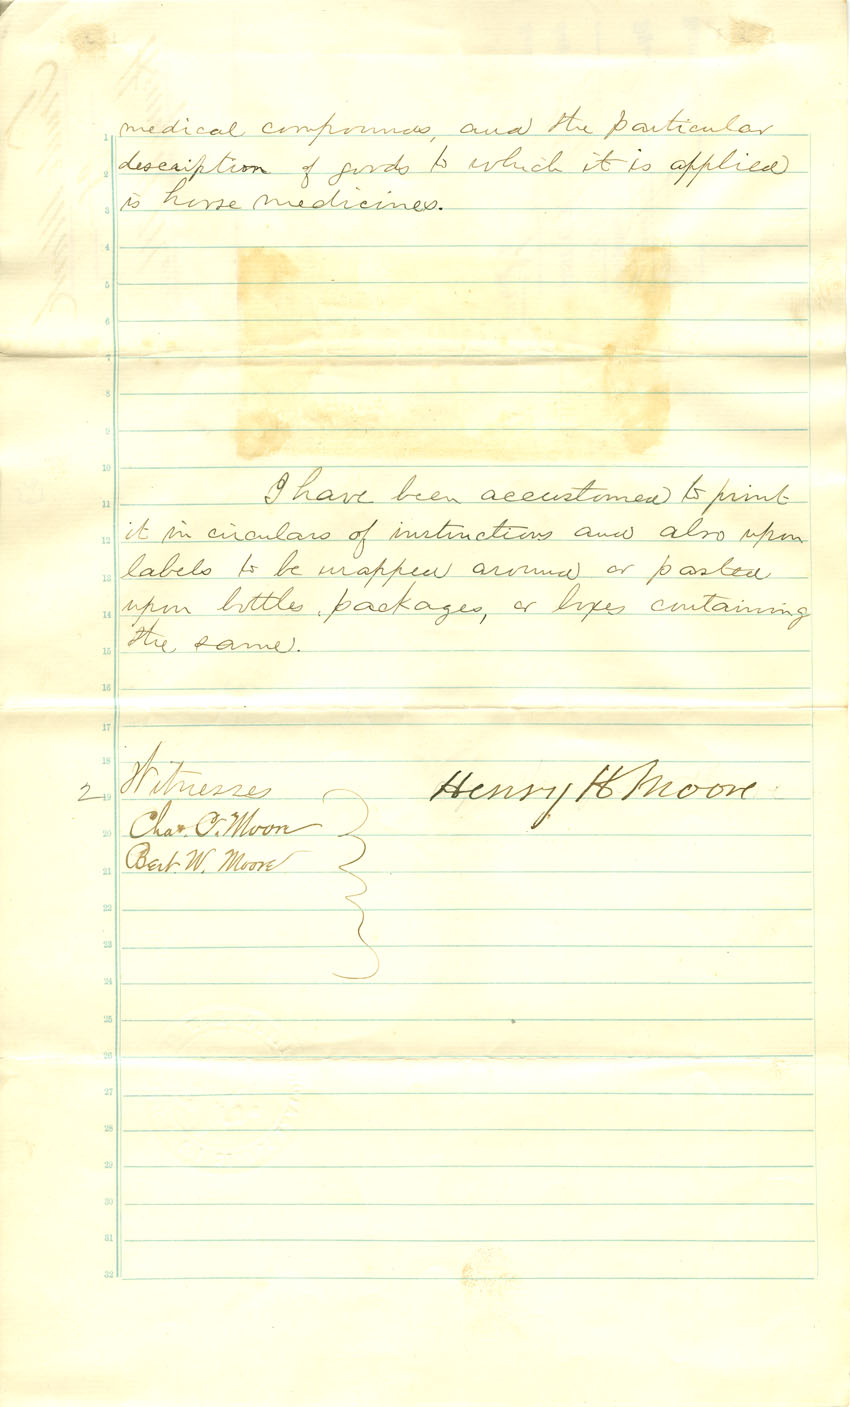 medical compounds, and the particular
description of goods to which it is applied
is horse medicines.
I have been accustomed to print
it in circulars of instructions and also upon
labels to be wrapped around or pasted
upon bottles, packages, or boxes containing
the same.
2 Witnesses Henry H Moore
Chas. Moore
Bert W. Moore
1
2
3
4
5
6
7
8
9
10
11
12
13
14
15
16
17
18
19
20
21
22
23
24
25
26
27
28
29
30
31
32